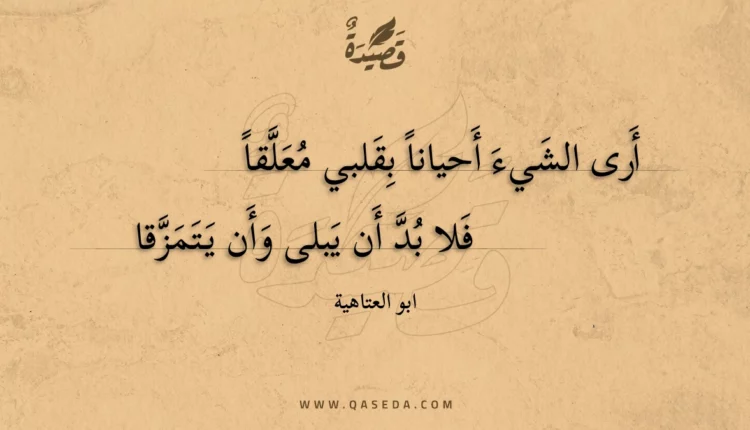 قَصِيدَةٌ
أَرى الشَيءَ أَحياناً بِقَلبي مُعَلَّقاً
فَلا بُدَّ أَن يَبلى وَأَن يَتَمَزَّقا
ابو العتاهية
WWW.QASEDA.COM